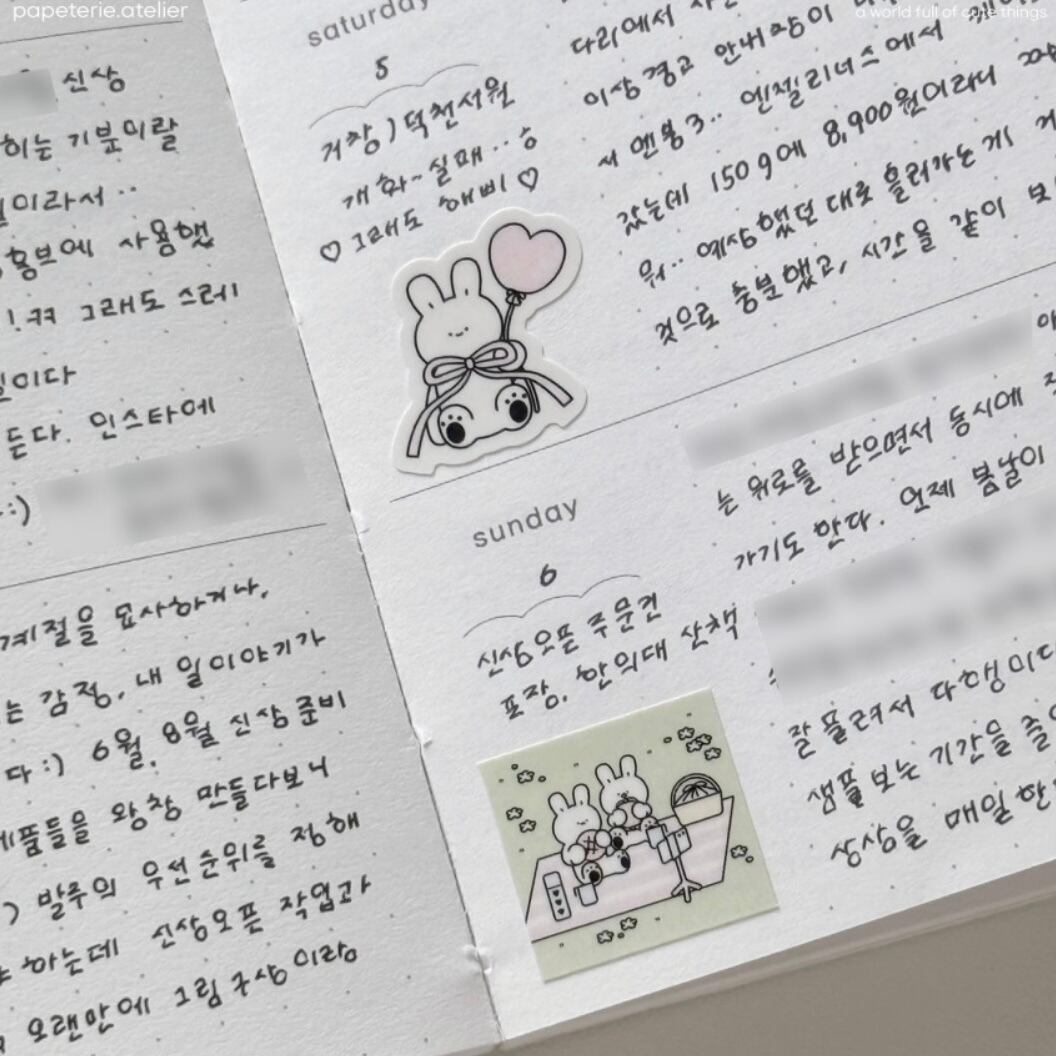 papeterie.atelier
a world full of cute things
신상
기분이랄
이라서..
홍보에 사용했
!ㅋㅋ 그래도 스레
일이다
든다. 인스타에
:)
계절을 묘사하거나,
는 감정, 내 일이야기가
다:) 6월, 8월 신상 준비
제품들을 왕창 만들다보니
) 발주의 우선순위를 정해
하는데 신상오픈 작업과
오랜만에 그림 구상이랑
saturday
5
거창) 덕천서원
개화~ 실패..ㅎ
♡ 그래도 해삐 ♡
다리에서
이상 경고 안내창이
서 멘붕3.. 엔젤리너스에서
갔는데 150g에 8,900원이라니
뭐.. 예상했던 대로 흘러가는 게
것으로 충분했고, 시간을 같이 보
sunday
6
신상오픈 주문건
포장, 한의대 산책
는 위로를 받으면서 동시에
가기도 한다. 언제 봄날이
잘 풀려서 다행이다
샘플 보는 기간을 줄
상상을 매일 한